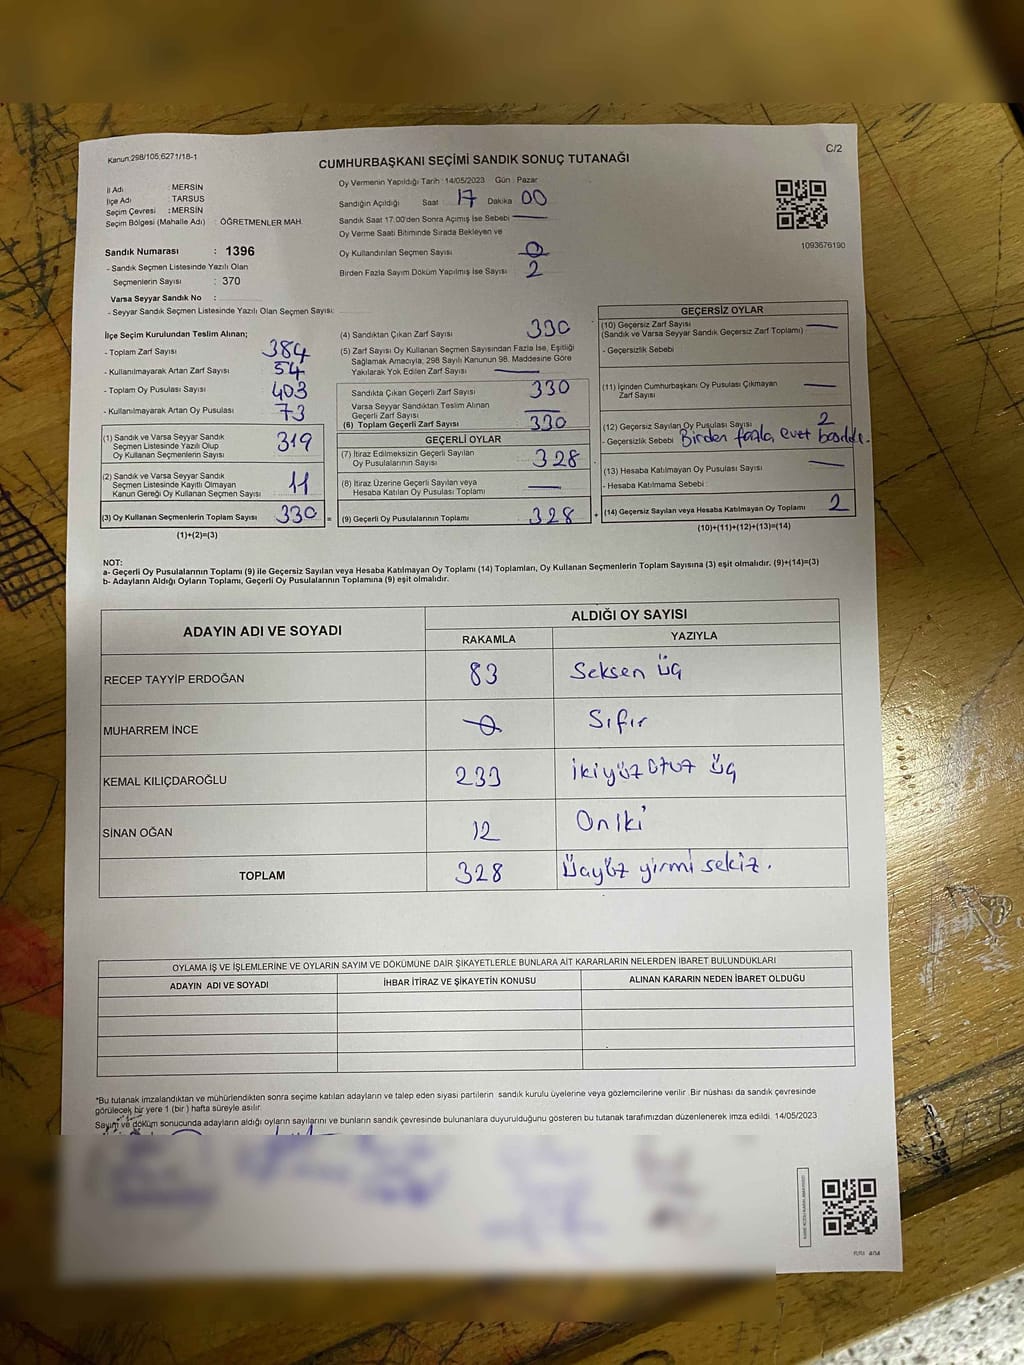 Kanun:298/105;6271/18-1
C/2
CUMHURBAŞKANI SEÇİMİ SANDIK SONUÇ TUTANAĞI
İl Adı : MERSİN
İlçe Adı : TARSUS
Seçim Çevresi : MERSİN
Seçim Bölgesi (Mahalle Adı) : ÖĞRETMENLER MAH.
Sandık Numarası : 1396
- Sandık Seçmen Listesinde Yazılı Olan
Seçmenlerin Sayısı : 370
Varsa Seyyar Sandık No :
- Seyyar Sandık Seçmen Listesinde Yazılı Olan Seçmen Sayısı:
Oy Vermenin Yapıldığı Tarih : 14/05/2023 Gün : Pazar
Sandığın Açıldığı Saat 17 Dakika 00
Sandık Saat 17:00'den Sonra Açılmış İse Sebebi
Oy Verme Saati Bitiminde Sırada Bekleyen ve
Oy Kullandırılan Seçmen Sayısı 0
Birden Fazla Sayım Döküm Yapılmış İse Sayısı 2
1093676190
İlçe Seçim Kurulundan Teslim Alınan;
- Toplam Zarf Sayısı 384
- Kullanılmayarak Artan Zarf Sayısı 54
- Toplam Oy Pusulası Sayısı 403
- Kullanılmayarak Artan Oy Pusulası 73
(1) Sandık ve Varsa Seyyar Sandık
Seçmen Listesinde Yazılı Olup
Oy Kullanan Seçmenlerin Sayısı 319
(2) Sandık ve Varsa Seyyar Sandık
Seçmen Listesinde Kayıtlı Olmayan
Kanun Gereği Oy Kullanan Seçmen Sayısı 11
(3) Oy Kullanan Seçmenlerin Toplam Sayısı 330 =
(1)+(2)=(3)
(4) Sandıktan Çıkan Zarf Sayısı 330
(5) Zarf Sayısı Oy Kullanan Seçmen Sayısından Fazla İse, Eşitliği
Sağlamak Amacıyla, 298 Sayılı Kanunun 98. Maddesine Göre
Yakılarak Yok Edilen Zarf Sayısı
Sandıkta Çıkan Geçerli Zarf Sayısı 330
Varsa Seyyar Sandıktan Teslim Alınan
Geçerli Zarf Sayısı
(6) Toplam Geçerli Zarf Sayısı 330
GEÇERLİ OYLAR
(7) İtiraz Edilmeksizin Geçerli Sayılan
Oy Pusulalarının Sayısı 328
(8) İtiraz Üzerine Geçerli Sayılan veya
Hesaba Katılan Oy Pusulası Toplamı
(9) Geçerli Oy Pusulalarının Toplamı 328 +
GEÇERSİZ OYLAR
(10) Geçersiz Zarf Sayısı
(Sandık ve Varsa Seyyar Sandık Geçersiz Zarf Toplamı)
- Geçersizlik Sebebi
(11) İçinden Cumhurbaşkanı Oy Pusulası Çıkmayan
Zarf Sayısı
(12) Geçersiz Sayılan Oy Pusulası Sayısı 2
- Geçersizlik Sebebi Birden fazla evet
(13) Hesaba Katılmayan Oy Pusulası Sayısı
- Hesaba Katılmama Sebebi :
(14) Geçersiz Sayılan veya Hesaba Katılmayan Oy Toplamı 2
(10)+(11)+(12)+(13)=(14)
NOT:
a- Geçerli Oy Pusulalarının Toplamı (9) ile Geçersiz Sayılan veya Hesaba Katılmayan Oy Toplamı (14) Toplamları, Oy Kullanan Seçmenlerin Toplam Sayısına (3) eşit olmalıdır. (9)+(14)=(3)
b- Adayların Aldığı Oyların Toplamı, Geçerli Oy Pusulalarının Toplamına (9) eşit olmalıdır.
ADAYIN ADI VE SOYADI
ALDIĞI OY SAYISI
RAKAMLA YAZIYLA
RECEP TAYYİP ERDOĞAN 83 Seksen üç
MUHARREM İNCE 0 Sıfır
KEMAL KILIÇDAROĞLU 233 ikiyüz otuz üç
SİNAN OĞAN 12 On iki
TOPLAM 328 Üçyüz yirmi sekiz.
OYLAMA İŞ VE İŞLEMLERİNE VE OYLARIN SAYIM VE DÖKÜMÜNE DAİR ŞİKAYETLERLE BUNLARA AİT KARARLARIN NELERDEN İBARET BULUNDUKLARI
ADAYIN ADI VE SOYADI İHBAR İTİRAZ VE ŞİKAYETİN KONUSU ALINAN KARARIN NEDEN İBARET OLDUĞU
*Bu tutanak imzalandıktan ve mühürlendikten sonra seçime katılan adayların ve talep eden siyasi partilerin sandık kurulu üyelerine veya gözlemcilerine verilir. Bir nüshası da sandık çevresinde
görülecek bir yere 1 (bir) hafta süreyle asılır.
Sayım ve döküm sonucunda adayların aldığı oyların sayılarını ve bunların sandık çevresinde bulunanlara duyurulduğunu gösteren bu tutanak tarafımızdan düzenlenerek imza edildi. 14/05/2023